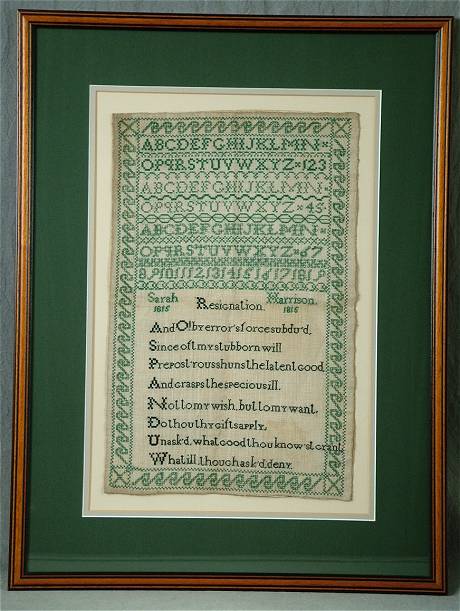 ABCDEFGHIJKLMN
OPQRSTUVWXYZ 123
ABCDEFGHIJKLMN
OPQRSTUVWXYZ 45
ABCDEFGHIJKLMN
OPQRSTUVWXYZ 67
8 9 10 11 12 13 14 15 16 17 18 19
Sarah Resignation. Harrison
1815 1815
And O! by error's force subdu'd,
Since oft my stubborn will
Prepost'rous shuns the latent good
And grasps the specious ill.
Not to my wish, but to my want,
Do thou thy gifts apply,
Unask'd, what good thou know'st grant
What ill, though ask'd, deny.